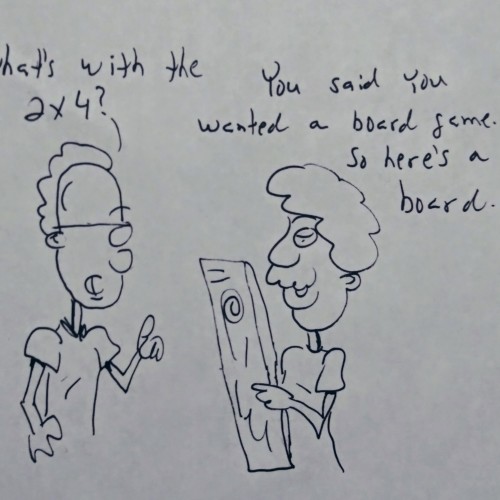 hat's with the
2x4?
You said you
wanted a board game.
So here's a
board.